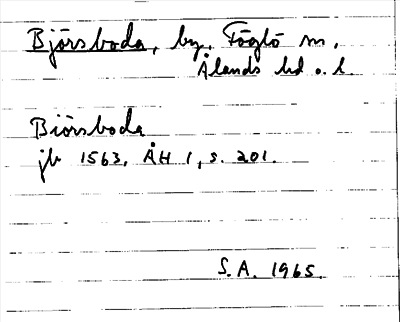 Björsboda, by, Föglö sn,
Ålands hd o. l.
Biörsboda
jb 1563, ÅH 1, s. 201.
S.A. 1965.